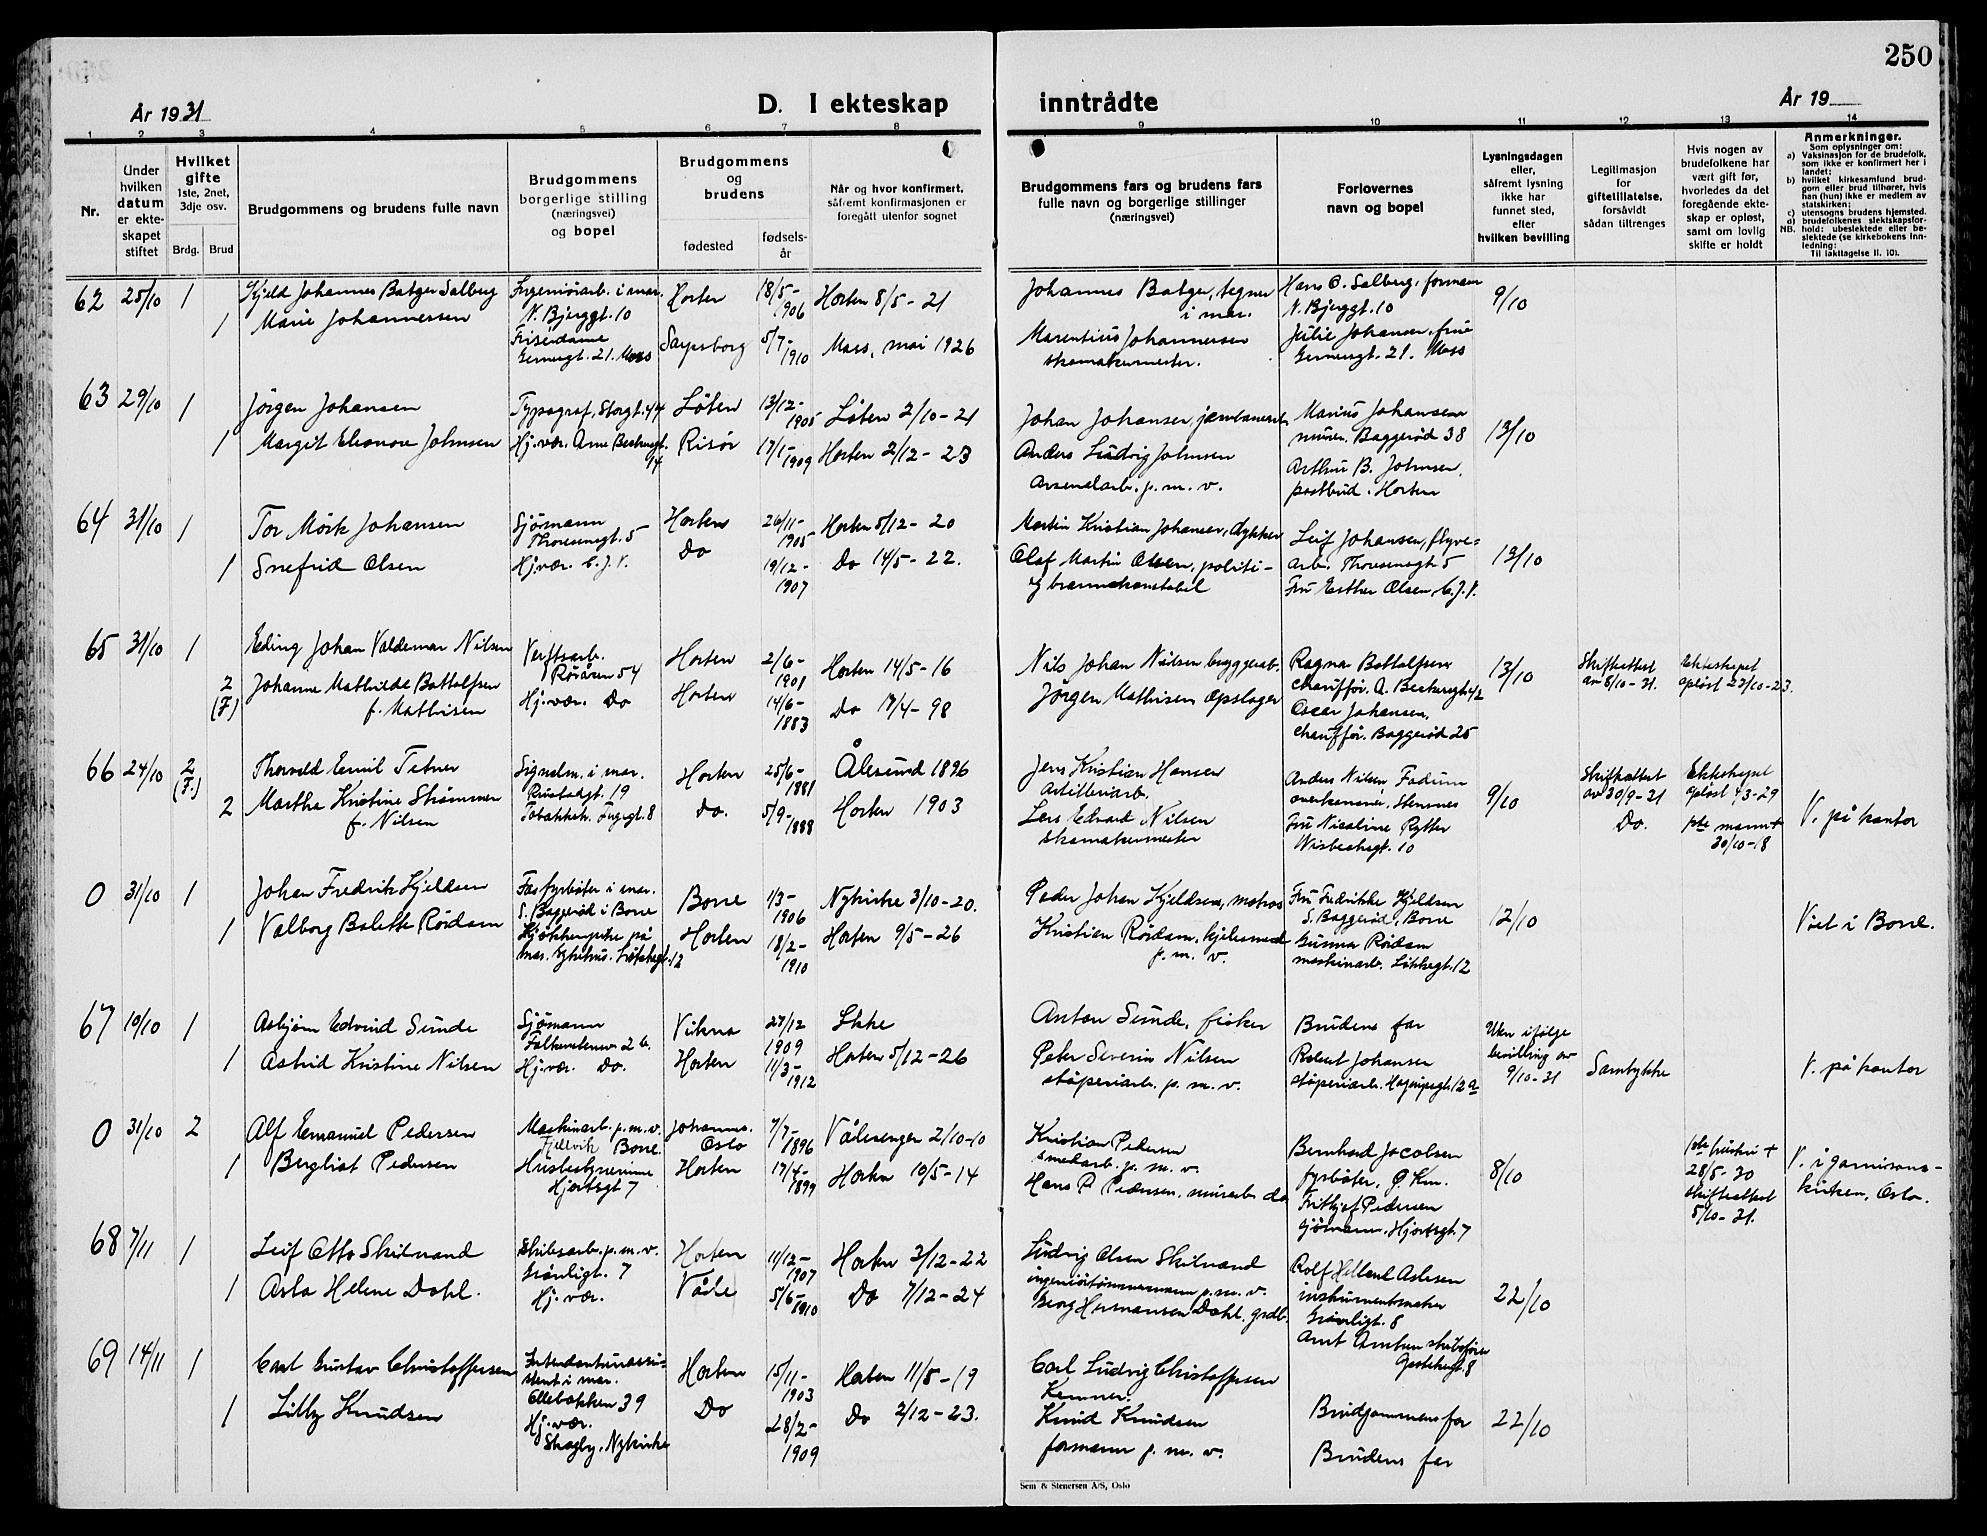 250
År 1931
D. I ekteskap inntrådte
År 19
1 2 3 4 5 6 7 8 9 10 11 12 13 14
Nr.
Under hvilken datum er ekteskapet stiftet
Hvilket gifte
1ste, 2net, 3dje osv.
Brdg. Brud
Brudgommens og brudens fulle navn
Brudgommens borgerlige stilling (næringsvei) og bopel
Brudgommens og brudens
fødested
fødselsår
Når og hvor konfirmert, såfremt konfirmasjonen er foregått utenfor sognet
Brudgommens fars og brudens fars fulle navn og borgerlige stillinger (næringsvei)
Forlovernes navn og bopel
Lysningsdagen eller, såfremt lysning ikke har funnet sted, eller hvilken bevilling
Legitimasjon for giftetillatelse, forsåvidt sådan tiltrenges
Hvis nogen av brudefolkene har vært gift før, hvorledes da det foregående ekteskap er opløst, samt om lovlig skifte er holdt
Anmerkninger.
Som oplysninger om:
a) Vaksinasjon for de brudefolk, som ikke er konfirmert her i landet:
b) hvilket kirkesamfund brudgom eller brud tilhører, hvis han (hun) ikke er medlem av statskirken;
c) utensogns brudens hjemsted.
d) brudefolkenes slektskapsforhold: ubeslektede eller beslektede (se kirkebokens Innledning:
NB.
Til iakttagelse II. 10).
62 25/10 1 Kjeld Johannes Batger Salberg Ingeniørarb. i mar. N. Bjerggt. 10 Horten 18/5-1906 Horten 8/5-21 Johannes Batger, tegner i mar. Hans O. Salberg, formann N. Bjerggt. 10 9/10
1 Marie Johannessen Frisørdame 21. Moss Sarpsborg 5/7-1910 Moss, mai 1926 Marentius Johannessen skomakermester. Julie Johansen, frue 21. Moss
63 29/10 1 Jörgen Johansen Typograf, Storgt. 44 Löten 13/12-1905 Löten 2/10-21 Johan Johansen, jernbanearb. Marius Johansen murer, Baggerød 38 13/10
1 Margit Eleonore Johnsen Hj. vær. Arne 14 Risör 17/1-1909 Horten 2/12-23 Anders Ludvig Johnsen Arsenalarb. p. m. v. Arthur B. Johnsen, postbud. Horten
64 31/10 1 Tor Mörk Johansen Sjömann Thoresensgt. 5 Horten 26/11-1905 Horten 5/12-20 Martin Kristian Johansen, dykker Leif Johansen, flyvearb. Thoresensgt 5 13/10
1 Snefrid Olsen Hj. vær. C. J. V. Do 19/12-1907 Do 14/5-22. Olaf Martin Olsen, politi- og brannkonstabel Fru Esther Olsen, C. J. V.
65 31/10 1 Eding Johan Valdemar Nilsen Verftsarb. Röråsen 54 Horten 2/6-1901 Horten 14/5-16 Nils Johan Nilsen bryggearb. Ragna Bottolfsen chauffør. 13/10 Skifteattest av 8/10-31. Ekteskapet opløst 22/10-23.
2 (F) Johanne Mathilde Bottolfsen f. Mathisen Hj. vær. Do Horten 14/6-1883 Do 17/4-98 Jörgen Mathisen Opslager Oscar Johansen, chauffør. Baggerød 25
66 24/10 2 (F.) Thorvald Emil Tetner Signalm. i mar. Rustadgt. 19 Horten 25/6-1881 Ålesund 1896 Jens Kristian Hansen Artilleriarb. Anders Nilsen Fodum 9/10 Skifteattest av 30/9-31 Ekteskapet opløst 4/3-29 V. på kontor
2 Martha Kristine Strömmen f. Nilsen Do. 5/9-1888 Horten 1903 Lars Edvard Nilsen skomakermester Fru Nicoline Rytter Wisbechsgt. 10 Do. 1ste mann + 30/10-18
0 31/10 1 Johan Fredrik Kjeldsen Fastfyrbøter i mar. S. Baggerød i Borre Borre 1/3-1906 Nykirke 3/10-20. Peder Johan Kjeldsen, matros Fru Fredrikke Kjeldsen S. Baggerød, Borre 12/10 Viet i Borre.
1 Valborg Bolette Rördam Kjøkkenpike på mar. sykehus. Horten 18/2-1910 Horten 9/5-26 Kristian Rördam, kjelesmed p. m. v. Gunnar Rördam maskinarb. Løkkegt. 12
67 10/10 1 Asbjörn Edvind Sunde Sjömann Falkensteinsv. 26. Vikna 27/12 1909 Ikke Anton Sunde, fisker Brudens far Uten ifølge bevilling av 9/10-31 Samtykke V. på kontor
1 Astrid Kristine Nilsen Hj. vær. Do. Horten 11/3-1912 Horten 5/12-26 Peter Severin Nilsen støperiarb. p. m. v. Robert Johansen støperiarb. 12a
0 31/10 2 Alf Emanuel Pedersen Maskinarb. p. m. v. Fjellvik Borre. Johannes. Oslo 7/7-1896 Vålerenger 2/10-10 Kristian Pedersen smedarb. p. m. v. Bernhard Jacobsen fyrbøter, 8/10 1ste hustru + 28/5-30 skifteattest 5/10-31. V. i garnisonskirken, Oslo.
1 Bergliot Pedersen Husbestyrerinne Hjortsgt 7 Horten 17/4-1899 Horten 10/5-14 Hans P. Pedersen, murarb. do Fritjof Pedersen sjömann. Hjortsgt. 7
68 7/11 1 Leif Otto Skilvand Skibsarb. p. m. v. Grönligt. 7 Horten 11/12-1907 Horten 3/12-22 Ludvig Olsen Skilvand ingeniörtömmermann p. m. v. Rolf Helland Aslesen instrumentmaker Grönligt. 8 22/10
1 Asta Helene Dahl. Hj. vær. Våle 5/6-1910 Do 7/12-24 Georg Hermansen Dahl, grdb. Arnt Arntsen skibsfører
69 14/11 1 Carl Gustav Christoffersen Intendanturassistent i mar. Ollebakken 39 Horten 15/11-1903 Horten 11/5-19 Carl Ludvig Christoffersen Kemner. Brudgommens far 22/10
1 Lilly Knudsen Hj. vær. Skogly. Nykirke Do 28/2-1909 Do 2/12-23. Knud Knudsen formann p. m. v. Brudens far
Sem & Stenersen A/S, Oslo